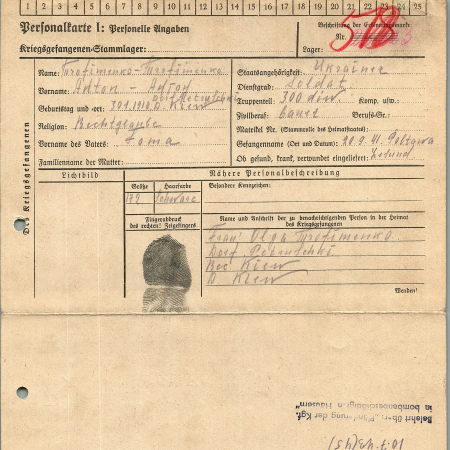 1 2 3 4 5 6 7 8 9 10 11 12 13 14 15 16 17 18 19 20 21 22 23 24 25
Personalkarte I: Personelle Angaben
Kriegsgefangenen-Stammlager:
Beschriftung der Erkennungsmarke
Nr.
Lager:
Des Kriegsgefangenen
Name: Trofimenko-Trofimenko
Vorname: Anton - Anton
Geburtstag und -ort: Kiew
Religion:
Vorname des Vaters: Foma
Familienname der Mutter:
Staatsangehörigkeit: Ukrainer
Dienstgrad: Soldat
Truppenteil: 300 div. Komp. usw.:
Zivilberuf: bauer Berufs-Gr.:
Matrikel Nr. (Stammrolle des Heimatstaates):
Gefangennahme (Ort und Datum): 20.9.41. Poltawa
Ob gesund, krank, verwundet eingeliefert: Gesund
Lichtbild
Nähere Personalbeschreibung
Größe Haarfarbe Besondere Kennzeichen:
172 Schwarz
Fingerabdruck
des rechten! Zeigefingers
Name und Anschrift der zu benachrichtigenden Person in der Heimat
des Kriegsgefangenen
Frau Olga Trofimenko
Dorf
Kiew
Kiew
Wenden!
Belehrt über „ der Kgf.
in bombengeschädigten Häusern"
10.7.43